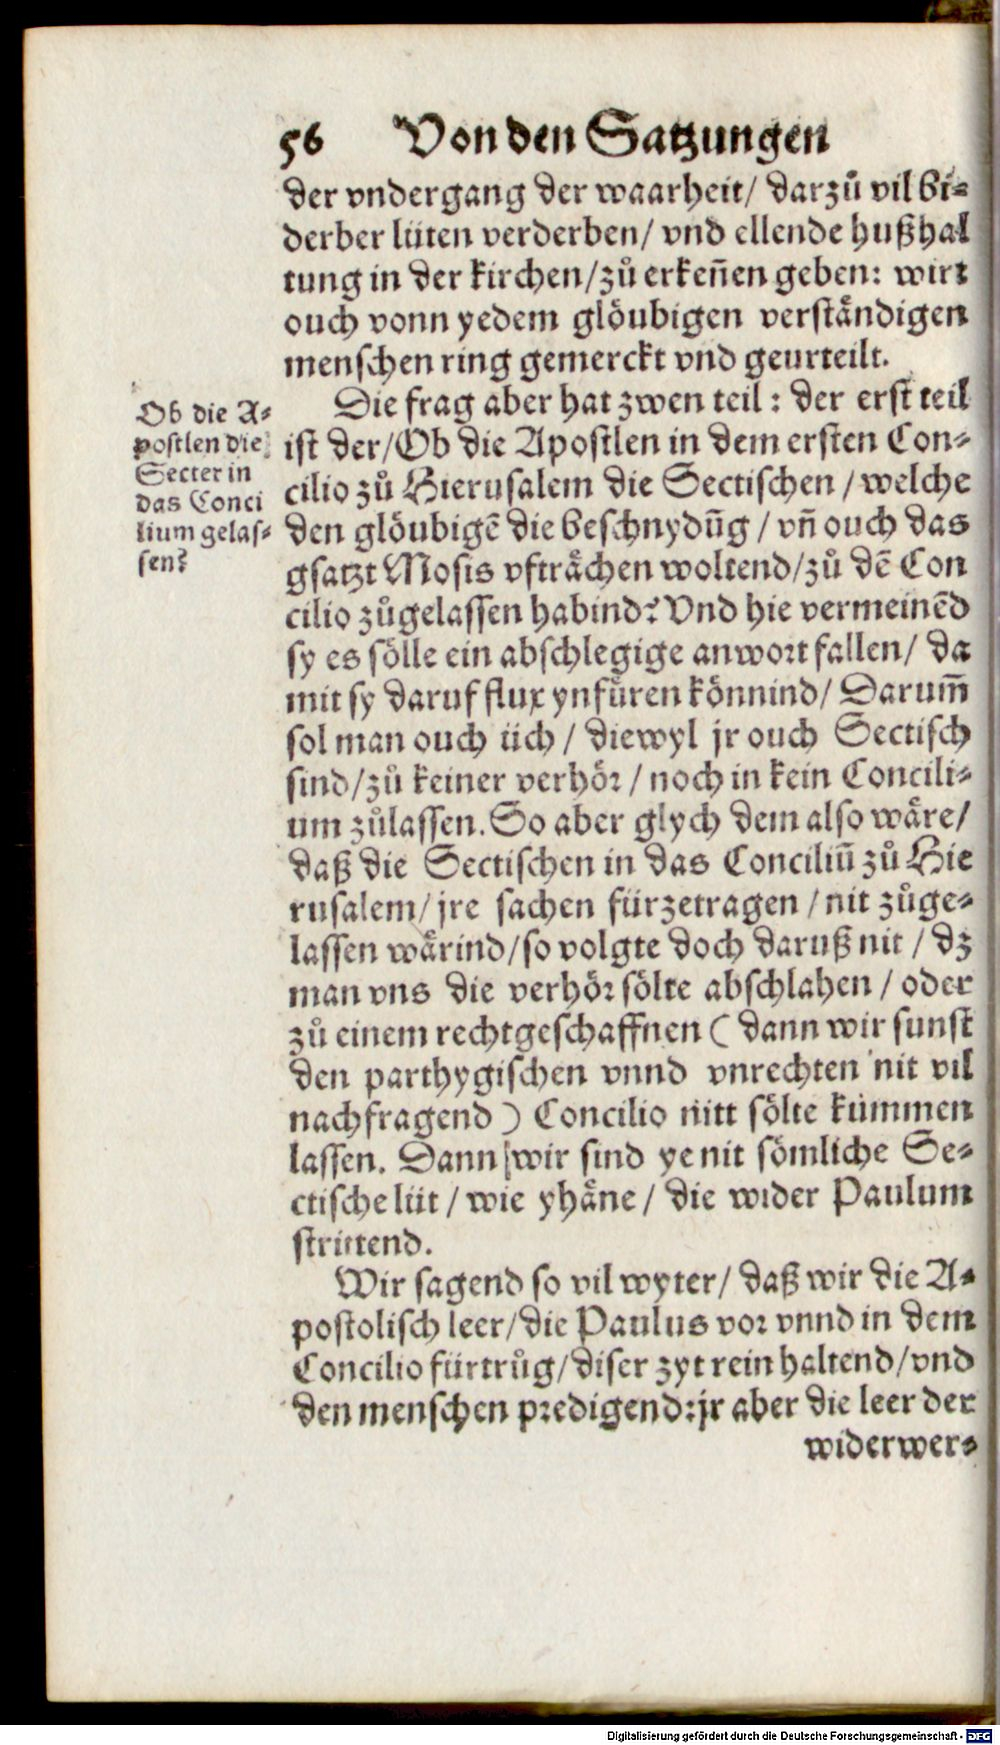 56 Von den Satzungen
der vndergang der waarheit/ darzů vil bi⸗
derber lüten verderben/ vnd ellende hußhal
tung in der kirchen/zů erkeñen geben: wirt
ouch vonn yedem glöubigen verständigen
menschen ring gemerckt vnd geurteilt.
Die frag aber hat zwen teil: der erst teil
ist der/Ob die Apostlen in dem ersten Con⸗
cilio zů Hierusalem die Sectischen/welche
den glöubigē die beschnydūg/vñ ouch das
gsatzt Mosis vfträchen woltend/zů dē Con
cilio zůgelassen habind? Vnd hie vermeinēd
sy es sölle ein abschlegige anwort fallen/ da
mit sy daruf flux ynfüren könnind/ Darum̄
sol man ouch üch/ diewyl jr ouch Sectisch
sind/zů keiner verhör/noch in kein Concili⸗
um zůlassen. So aber glych dem also wäre/
daß die Sectischen in das Conciliū zů Hie
rusalem/jre sachen fürzetragen/nit zůge⸗
lassen wärind/so volgte doch daruß nit/dz
man vns die verhör sölte abschlahen/oder
zů einem rechtgeschaffnen (dann wir sunst
den parthygischen vnnd vnrechten nit vil
nachfragend) Concilio nitt sölte kummen
lassen. Dann wir sind ye nit sömliche Se⸗
ctische lüt/wie yhäne/die wider Paulum
strittend.
Wir sagend so vil wyter/daß wir die A⸗
postolisch leer/die Paulus vor vnnd in dem
Concilio fürtrůg/diser zyt rein haltend/vnd
den menschen predigend:jr aber die leer der
widerwer⸗
Ob die A⸗
postlen die
Secter in
das Conci
lium gelas⸗
sen?
Digitalisierung gefördert durch die Deutsche Forschungsgemeinschaft - DFG